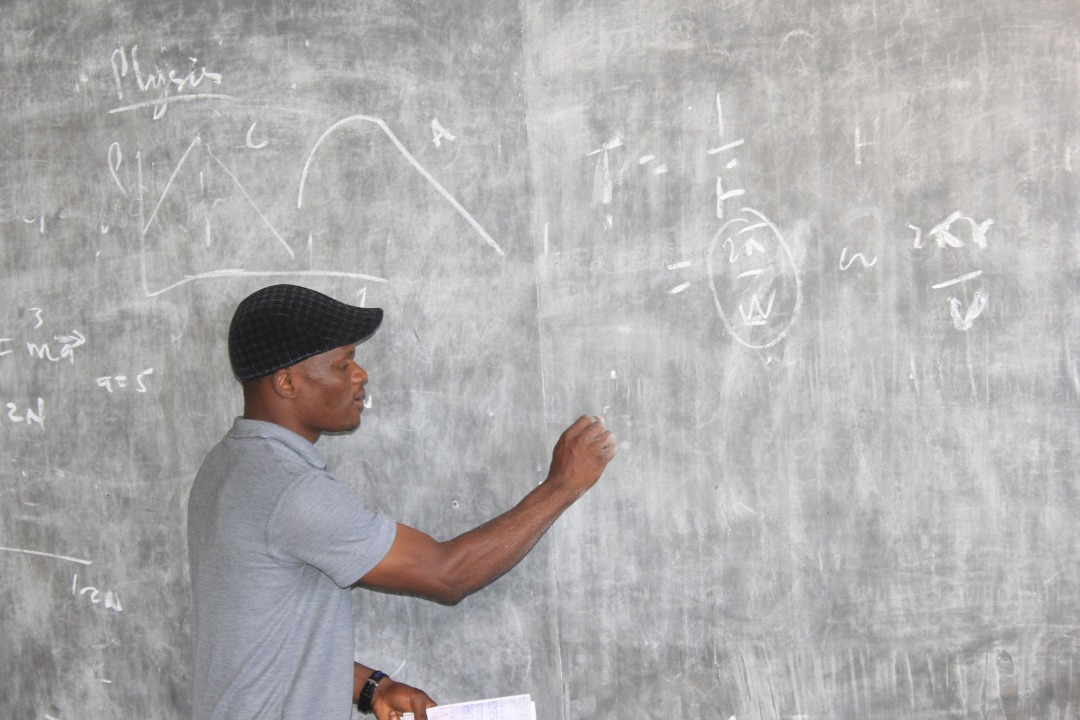 Physics
P
C
A
3
= ma
a=5
2N
12N
T = 1
f
= 2π
W
2πr
V